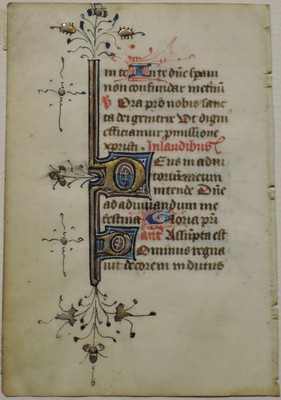 in te In te dñe spaui
non confundar metinũ
V Ora pro nobis sanc
ta dei genitrix Ut digni
efficiamur pmissione
xpristi In laudibus
Deus in adiu
torium meum
intende Dñe
ad adiuuandum me
festina Gloria pri
ant Assũpta est
Dominus regna
uit decorem indutus